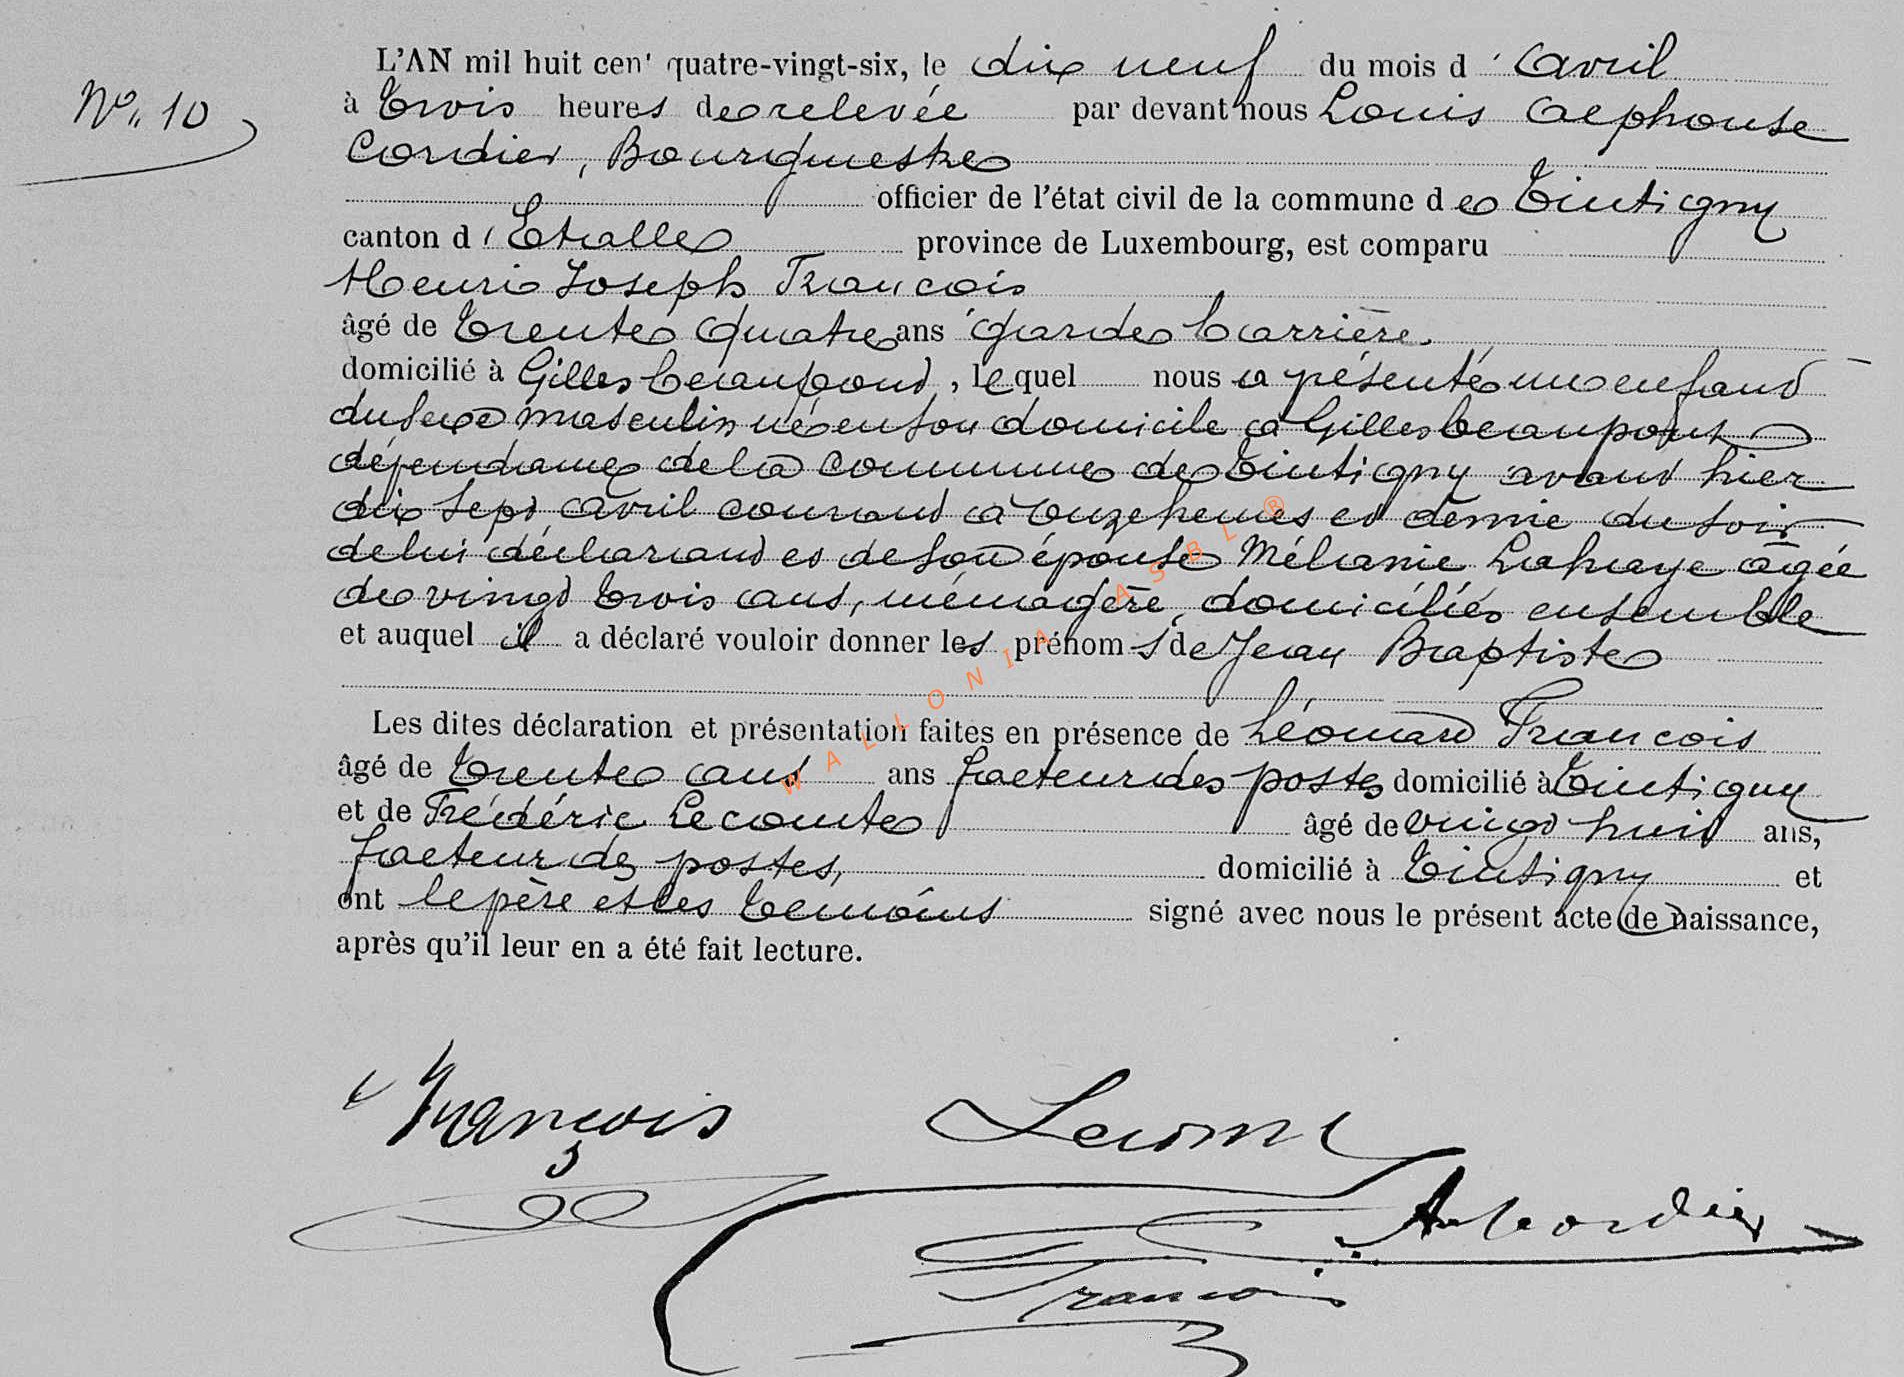 N° 10
L'AN mil huit cen' quatre-vingt-six, le dix neuf du mois d'avril
à trois heures de relevée par devant nous Louis Alphonse
Cordier, Bourgmestre
officier de l'état civil de la commune de Tintigny
canton d'Etalle province de Luxembourg, est comparu
Henri Joseph François
âgé de trente quatre ans garde barrière
domicilié à Gilles beaupont, lequel nous a présenté un enfant
du sexe masculin né en son domicile à Gillesbeaupont
dépendance de la commune de Tintigny avant hier
dix sept avril courant à onze heures et demie du soir
de lui déclarant et de son épouse Mélanie Lahaye âgée
de vingt trois ans, ménagère, domiciliés ensemble
et auquel il a déclaré vouloir donner les prénoms de Jean Baptiste
Les dites déclaration et présentation faites en présence de Léonard François
âgé de trente ans ans facteur des postes domicilié à Tintigny
et de Frédéric Lecomte âgé de vingt huit ans,
facteur des postes, domicilié à Tintigny et
ont le père et les témoins signé avec nous le présent acte de naissance,
après qu'il leur en a été fait lecture.
WALLONIA ASBL ®
François
A Cordier
François